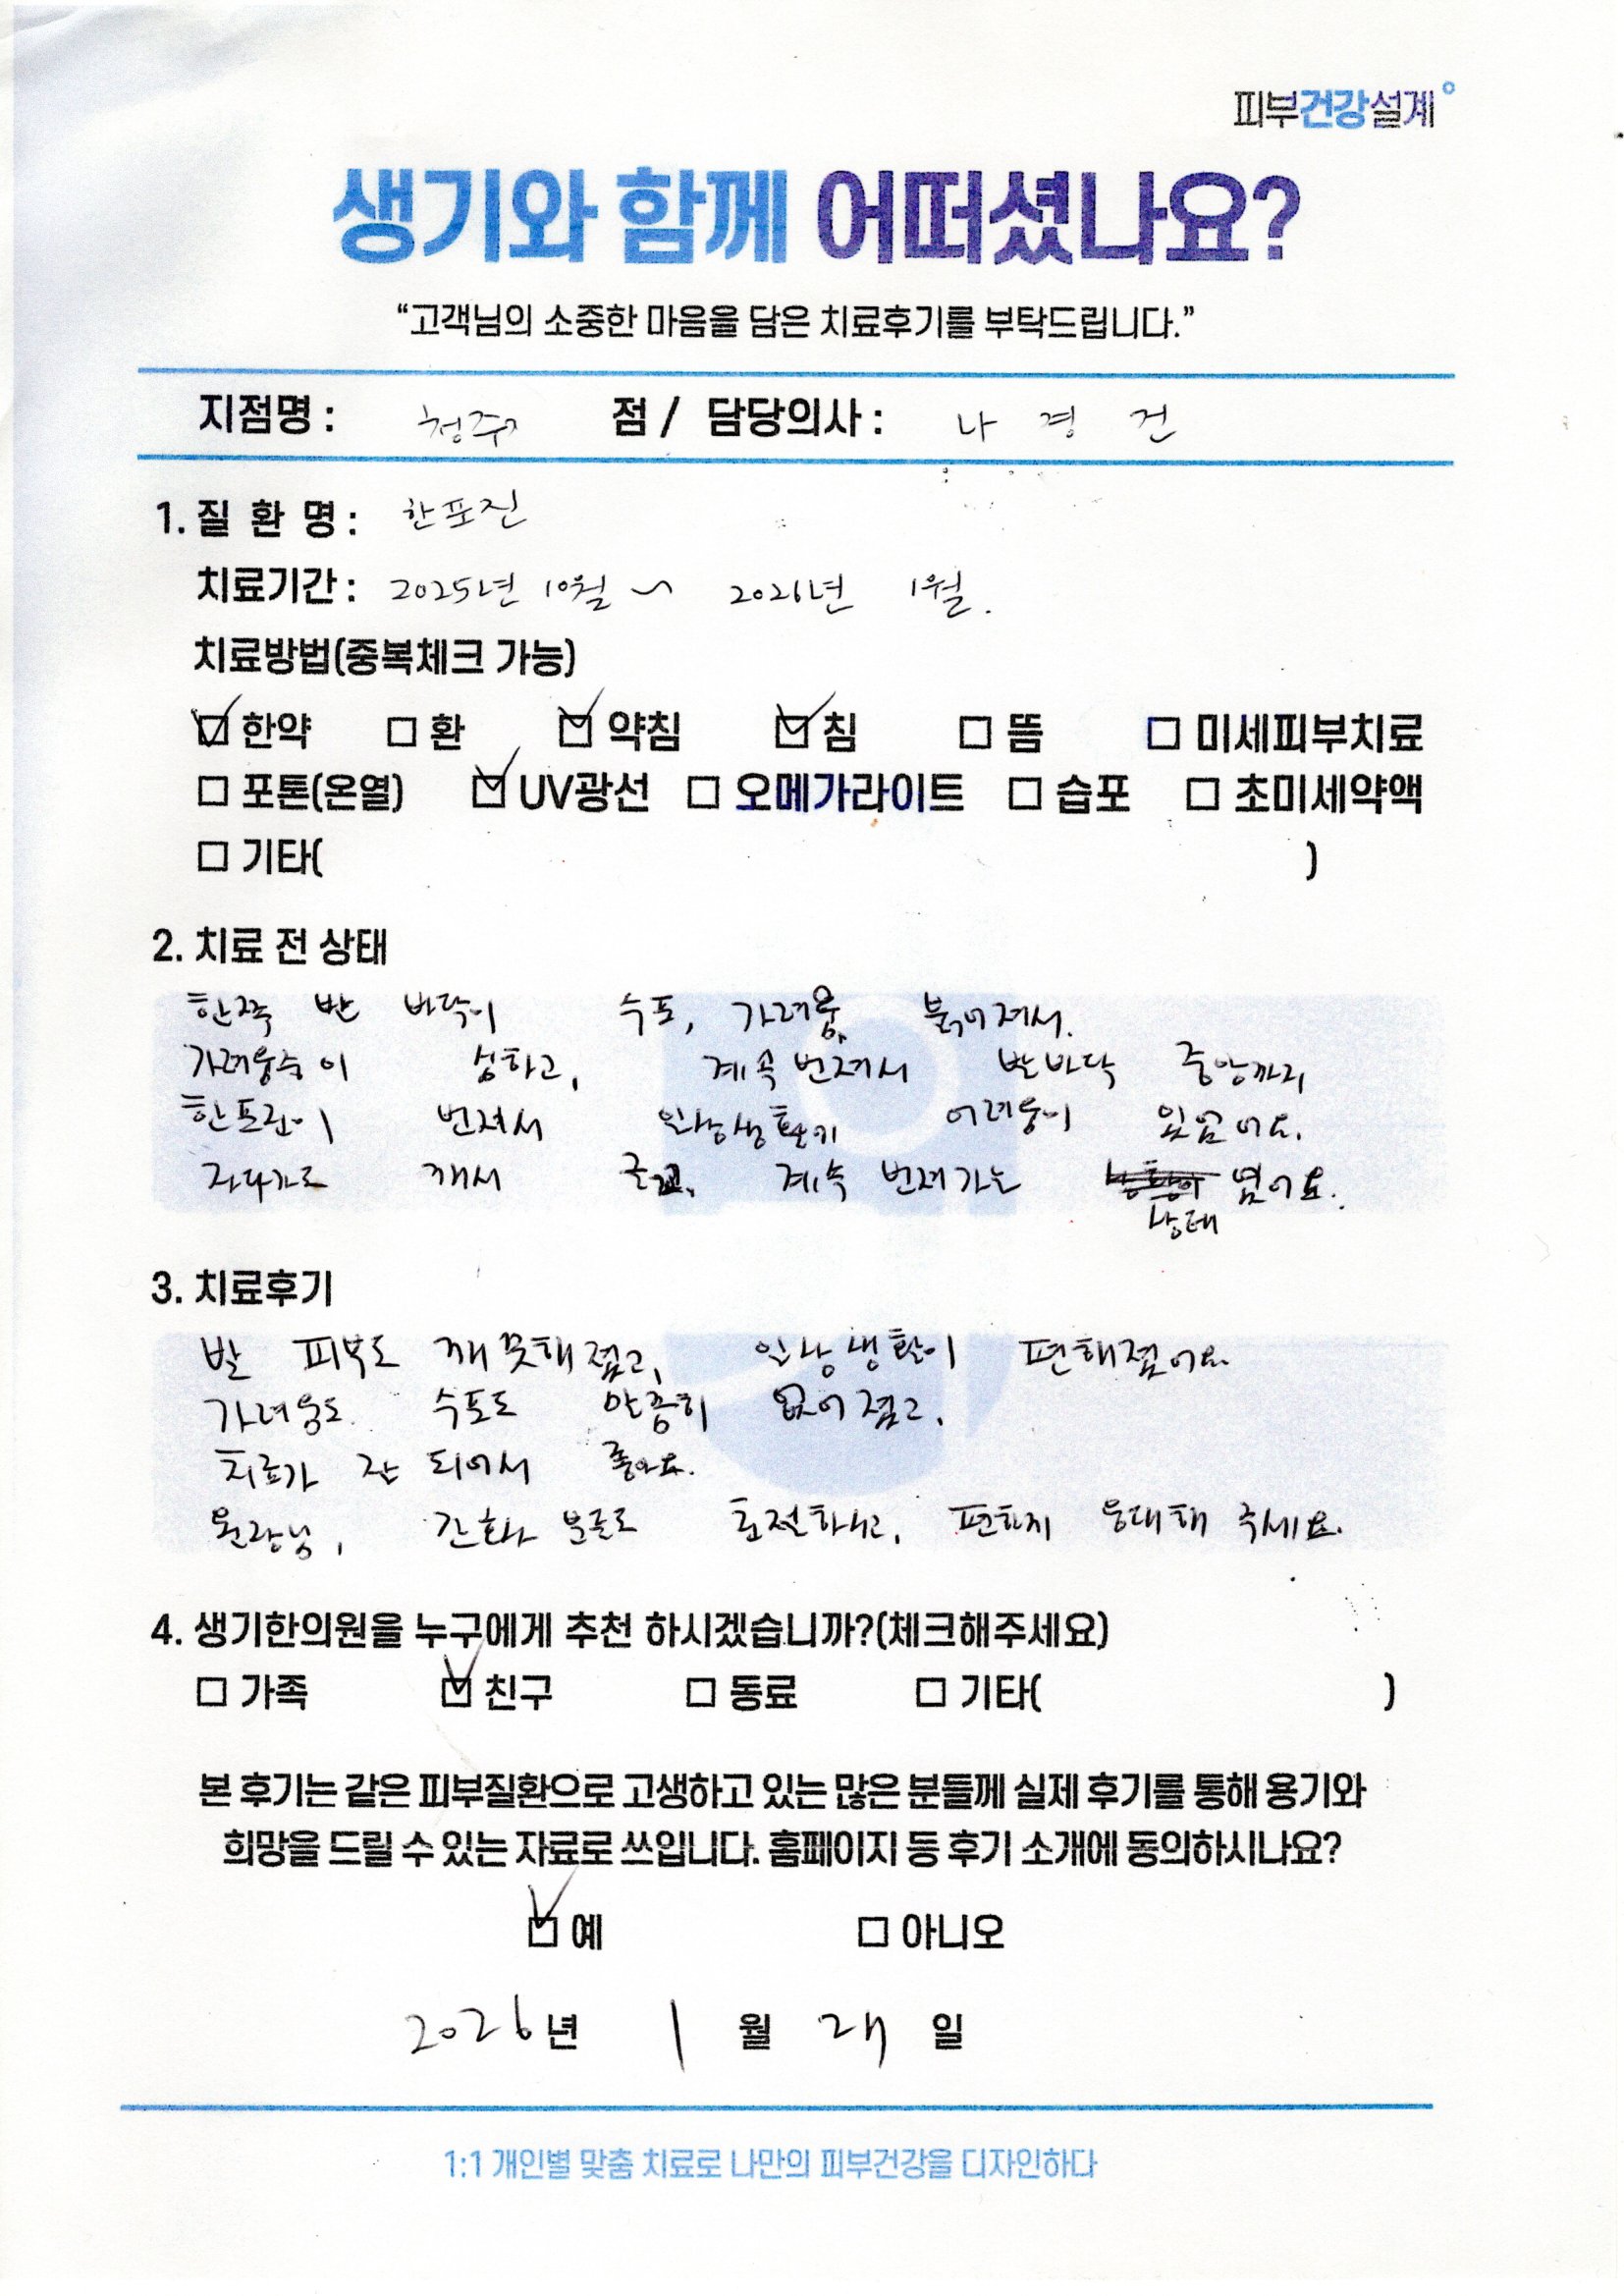 피부건강설계
생기와 함께 어떠셨나요?
“고객님의 소중한 마음을 담은 치료후기를 부탁드립니다.”
지점명 : 청주 점 / 담당의사 : 나 경 건
1. 질 환 명 : 한포진
치료기간 : 2025년 10월 ~ 2026년 1월.
치료방법(중복체크 가능)
☑ 한약 □ 환 ☑ 약침 ☑ 침 □ 뜸 □ 미세피부치료
□ 포톤(온열) ☑ UV광선 □ 오메가라이트 □ 습포 □ 초미세약액
□ 기타( )
2. 치료 전 상태
한쪽 발 바닥이 수포, 가려움, 붉어져서.
가려움증이 심하고, 계속 번져서 발바닥 중앙까지
한포진이 번져서 일상생활이 어려움이 있었어요.
자다가도 깨서 긁고, 계속 번져가는 였어요.
상태
3. 치료후기
발 피부도 깨끗해졌고, 일상생활이 편해졌어요.
가려움도 수포도 완전히 없어졌고,
치료가 잘 되어서 좋아요.
원장님, 간호사 분들도 친절하시고, 편하게 응대해 주세요.
4. 생기한의원을 누구에게 추천 하시겠습니까?(체크해주세요)
□ 가족 ☑ 친구 □ 동료 □ 기타( )
본 후기는 같은 피부질환으로 고생하고 있는 많은 분들께 실제 후기를 통해 용기와
희망을 드릴 수 있는 자료로 쓰입니다. 홈페이지 등 후기 소개에 동의하시나요?
☑ 예 □ 아니오
2026년 1 월 일
1:1 개인별 맞춤 치료로 나만의 피부건강을 디자인하다